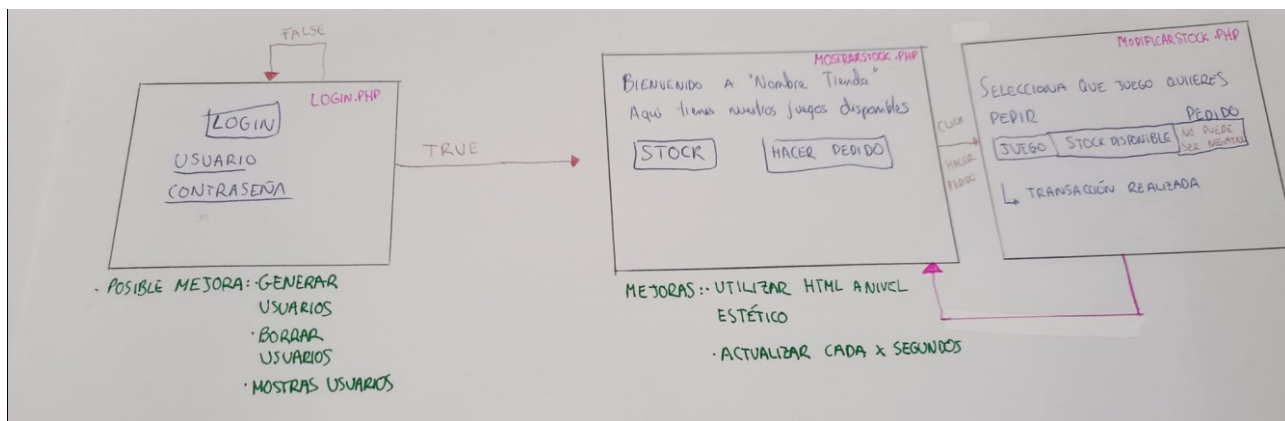 FALSE
LOGIN.PHP
LOGIN
USUARIO
CONTRASEÑA
· POSIBLE MEJORA: · GENERAR
USUARIOS
· BORRAR
USUARIOS
· MOSTRAS USUARIOS
TRUE
MOSTRARSTOCK.PHP
BIENVENIDO A "Nombre Tienda"
Aqui tienes nuestros juegos disponibles
STOCK
HACER PEDIDO
MEJORAS: · UTILIZAR HTML A NIVEL
ESTÉTICO
· ACTUALIZAR CADA X SEGUNDOS
CLICK
HACER
PEDIDO
MODIFICARSTOCK.PHP
SELECCIONA QUE JUEGO QUIERES
PEDIR
PEDIDO
JUEGO
STOCK DISPONIBLE
NO PUEDE
SER NEGATIVO
TRANSACCIÓN REALIZADA